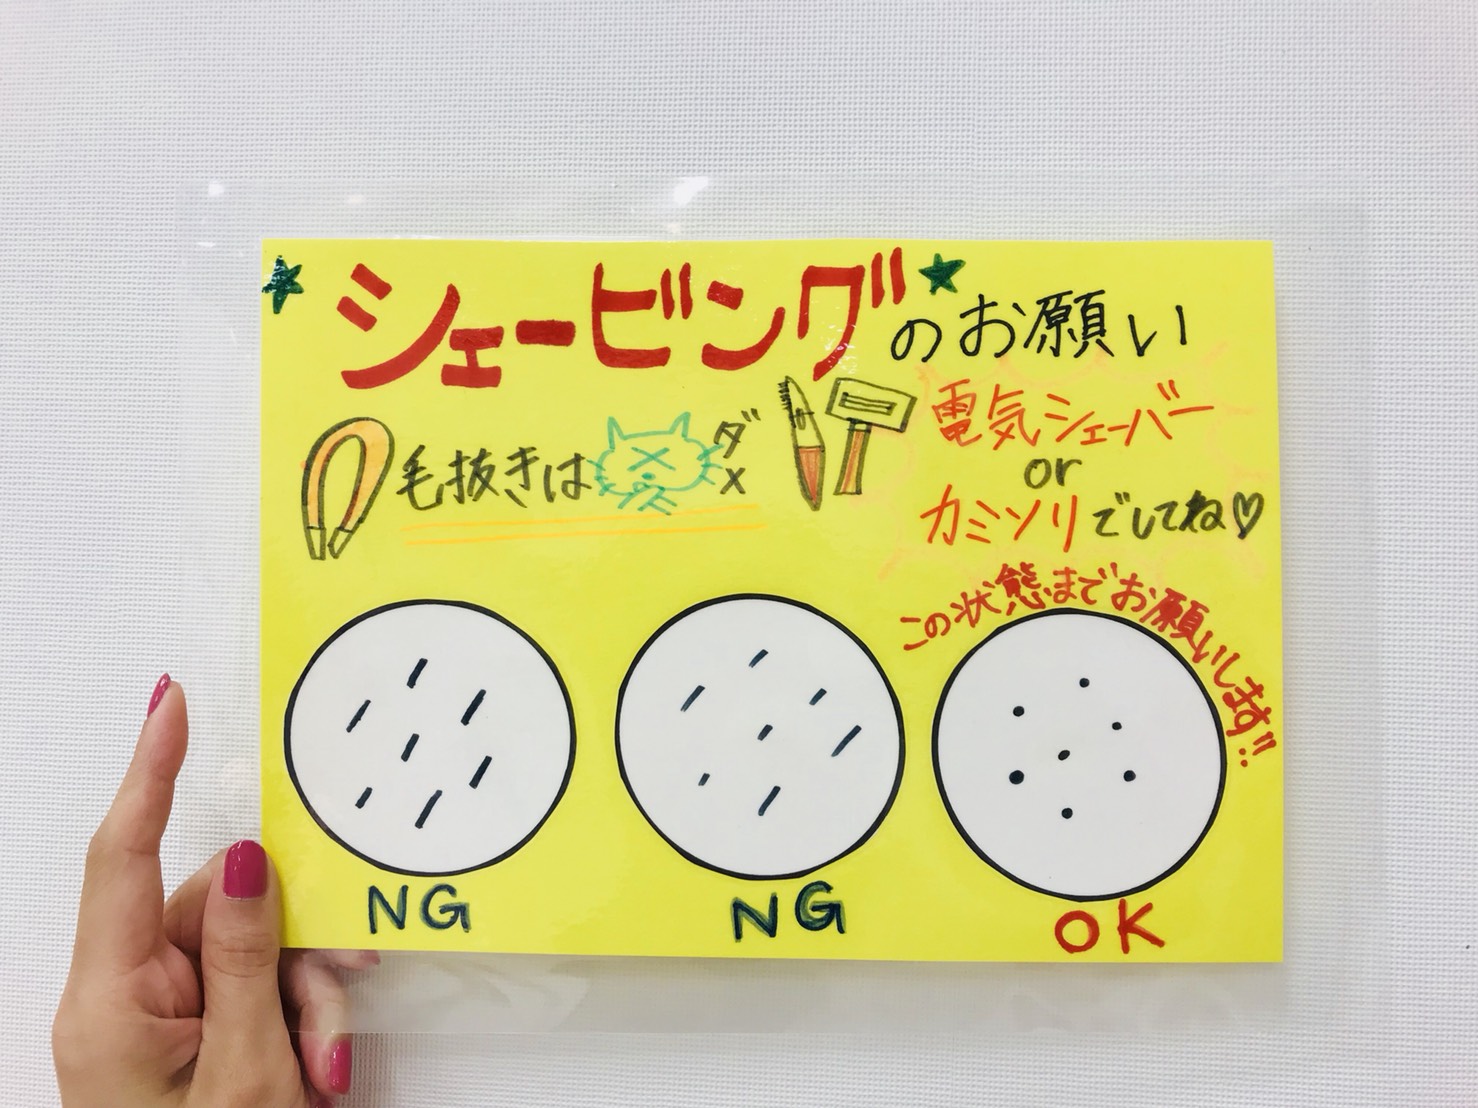 シェービングのお願い
毛抜きはダメ
電気シェーバー
or
カミソリでしてね♡
この状態までお願いします!!
NG
NG
OK